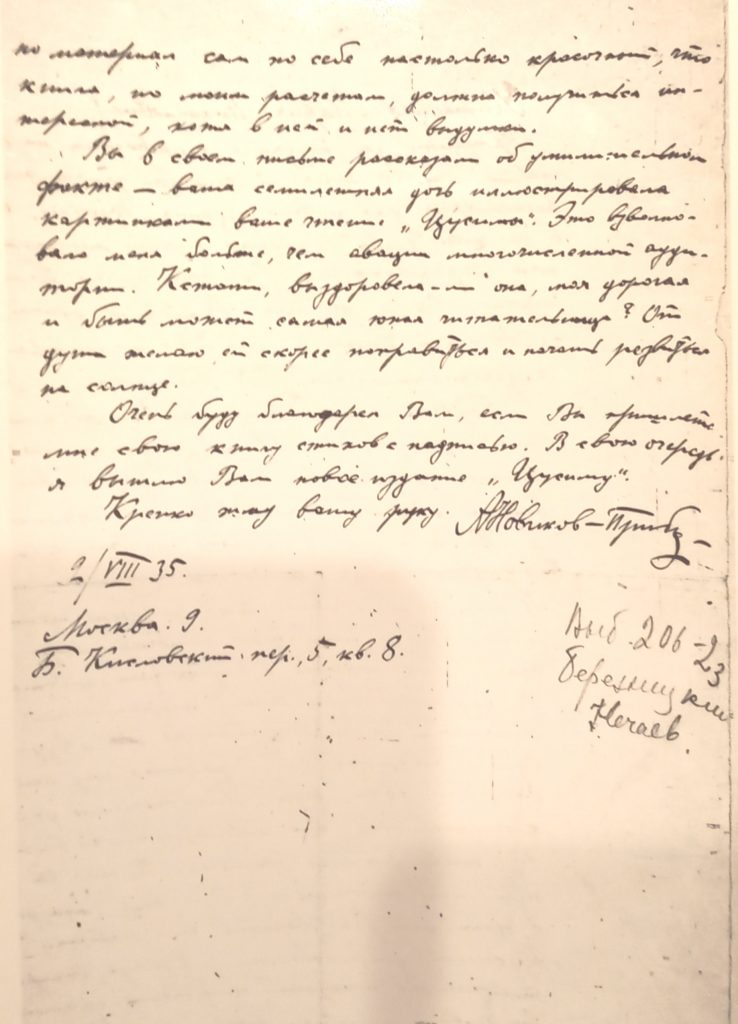 но материал сам по себе настолько красочный, что
книга, по моим расчетам, должна получиться ин-
тересной, хотя в ней и нет выдумки.
Вы в своем письме рассказали об умилительном
факте — ваша семилетняя дочь иллюстрировала
картинками ваше чтение „Цусимы“. Это взволно-
вало меня больше, чем овации многочисленной ауди-
тории. Кстати, выздоровела-ли она, моя дорогая
и быть может самая юная читательница? От
души желаю ей скорее поправиться и начать резвиться
на солнце.
Очень буду благодарен Вам, если Вы пришлете
мне свою книгу стихов с надписью. В свою очередь
я вышлю Вам новое издание „Цусиму“.
Крепко жму вашу руку. А Новиков-Прибой
2/VIII 35.
Москва. 9.
Б. Кисловский пер., 5, кв. 8.
Выб. 206-23
Нечаев.